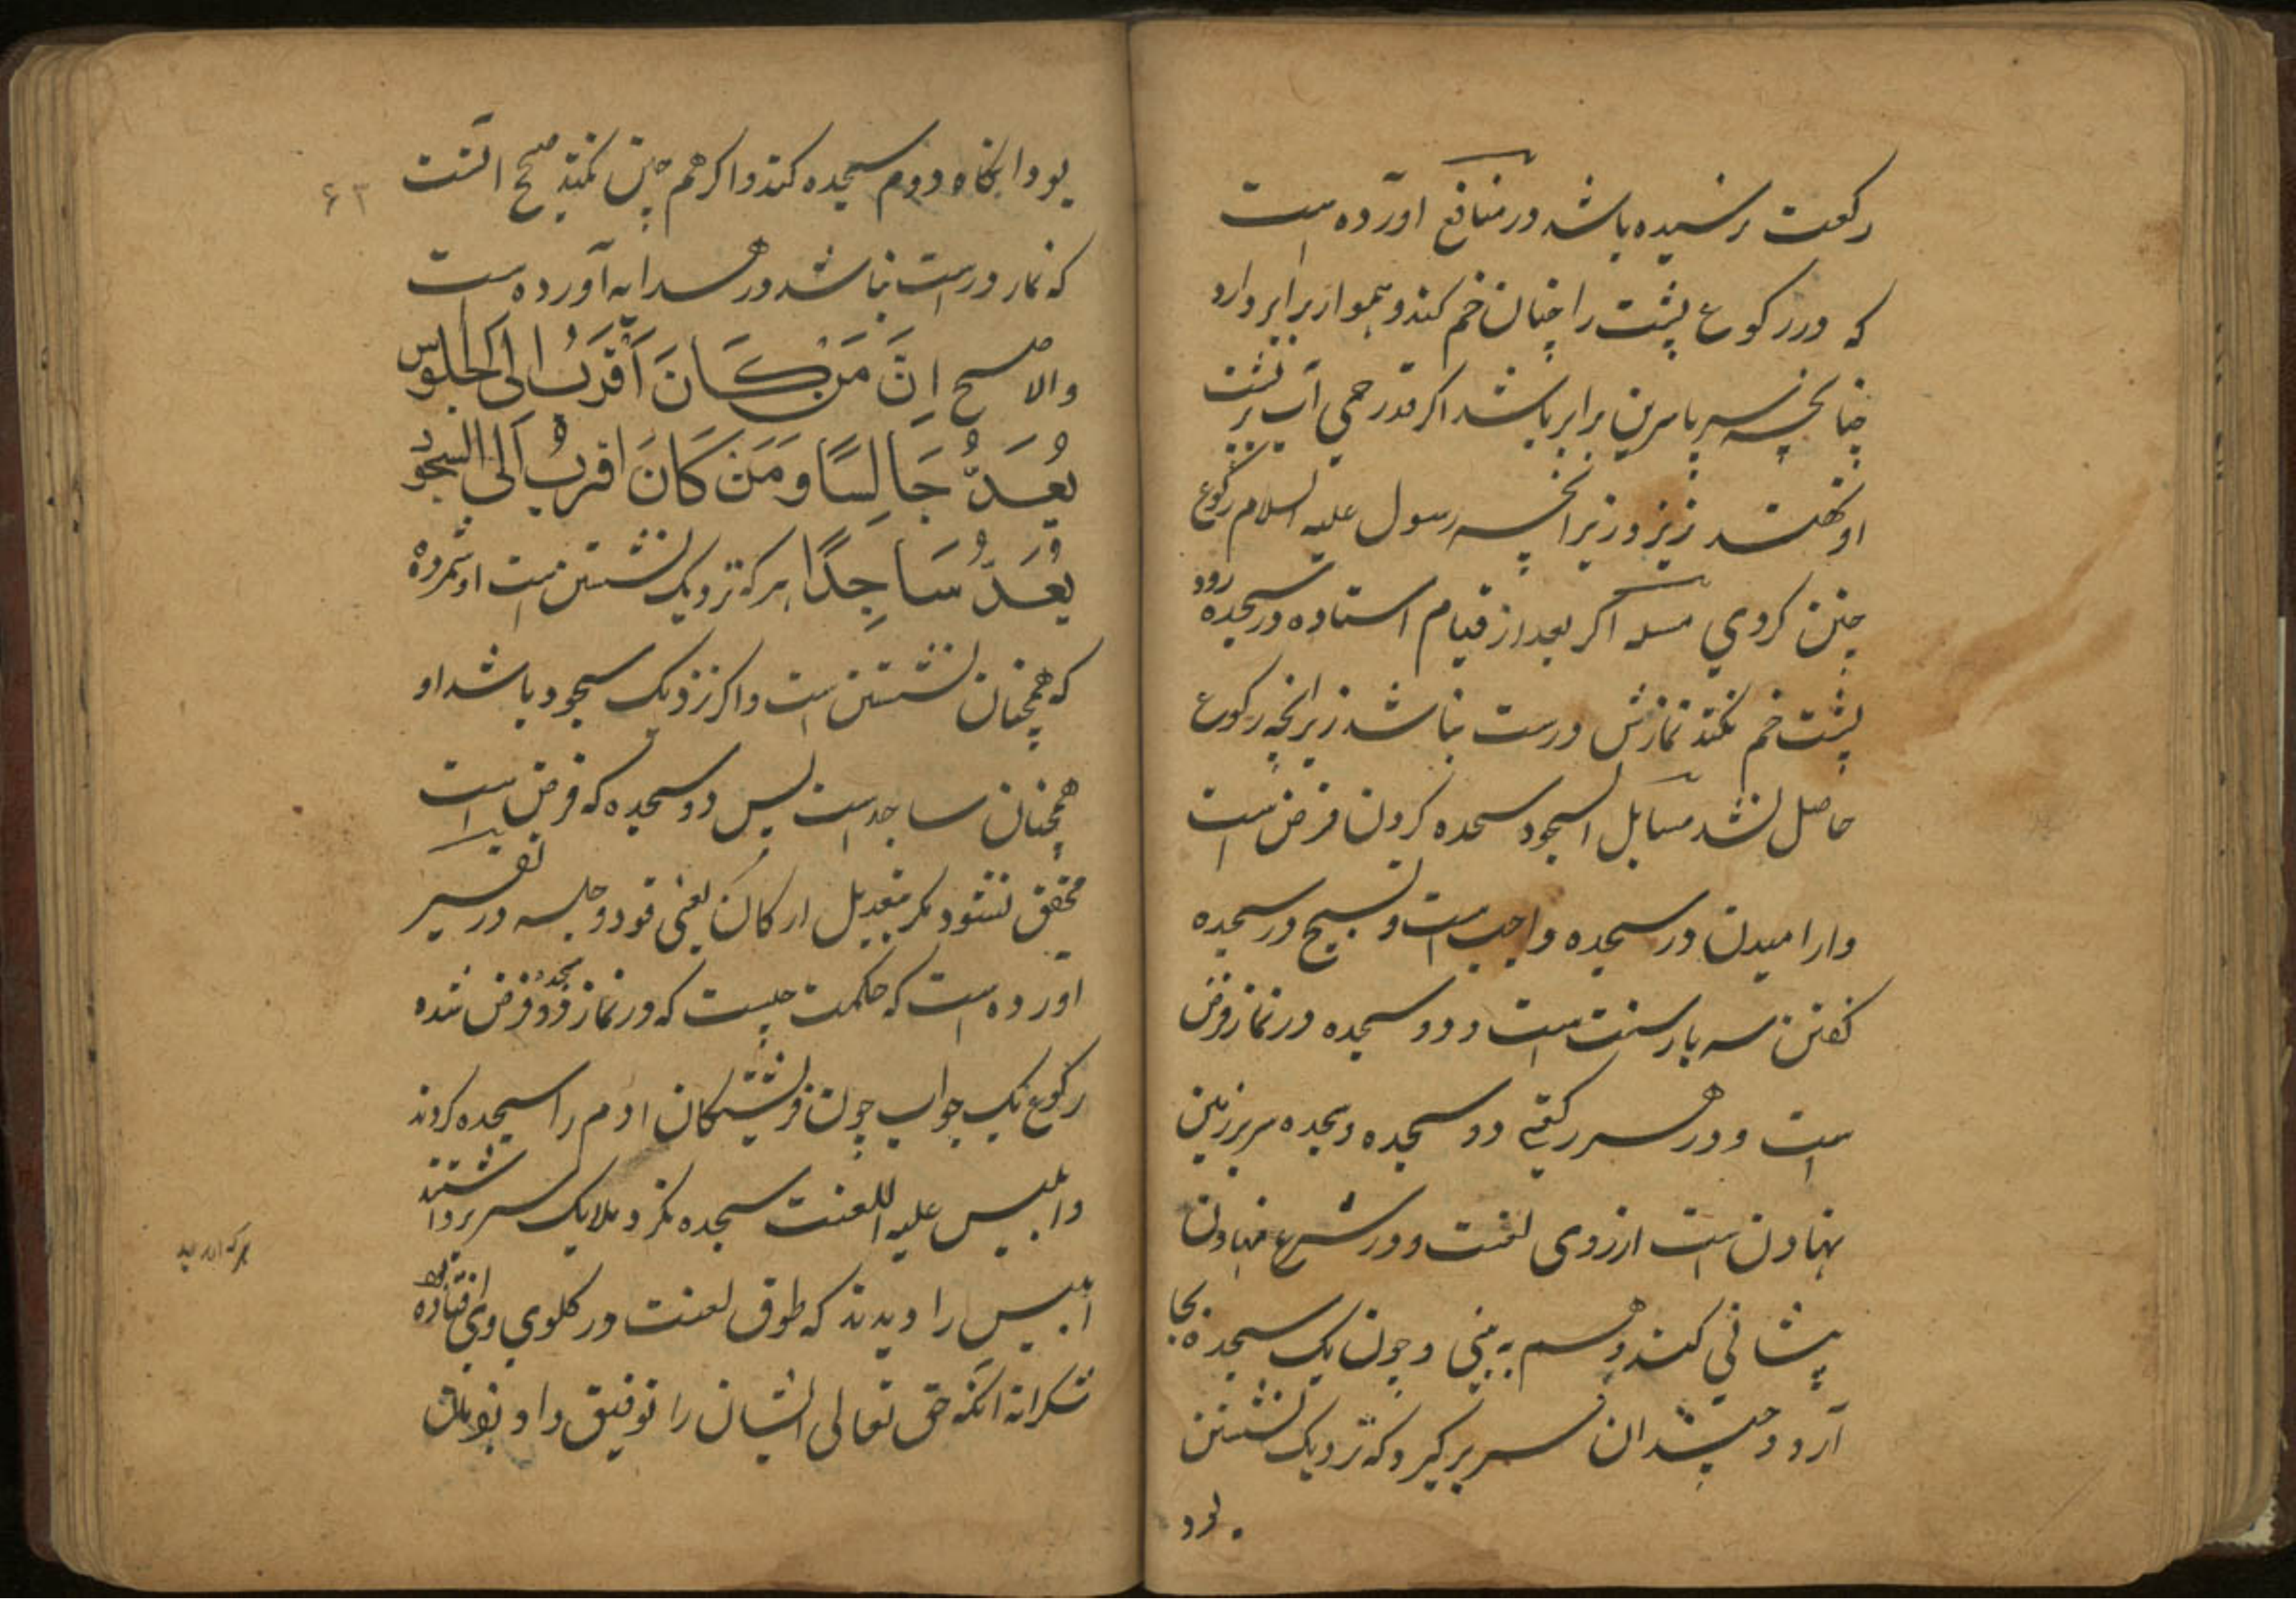 رکعت رسیده باشد در منافع آورده است
که در رکوع پشت را چنان خم کند و هموار برابر دارد
چنانچه سر با سرین برابر باشد اگر قدحی آب بر پشت
او نهند نریزد زیرانچه رسول علیه السلام رکوع
چنین کردی مسله اگر بعد از قیام استاده در سجده رود
پشت خم نکند نمازش درست نباشد زیرانچه رکوع
حاصل نشد مسایل السجود سجده کردن فرض است
وارامیدن در سجده واجب است و تسبیح در سجده
کفتن سه بار سنت است و دو سجده در نماز فرض
است و در هر رکعتی دو سجده و سجده سر بر زمین
نهادن است از روی لغت و در شرع نهادن
پیشانی کند و هم به بینی و چون یک سجده بجا
آرد و چندان سر بر کیرد که نزدیک نشستن
بود
بود انکاه دوم سجده کند و اکر هم چنین نکند صحیح انست
که نماز درست نباشد در هدایه آورده است
والاصح اِنَّ مَنْ کَانَ اَقْرَبُ الی الجلوس
یُعَدُّ جَالِسًا وَمَنْ کَانَ اقربُ الی السجود
یُعَدُّ سَاجِدًا هر که نزدیک نشستن است او شمرده
که همچنان نشستن است و اکر نزدیک سجود باشد او
همچنان ساجد است پس دو سجده که فرض است
محقق نشود مکر بتعدیل ارکان یعنی قود و جلسه در تفسیر
آورده است که حکمت چیست که در نماز دو سجده فرض شده
رکوع یک جواب چون فرشتکان ادم را سجده کردند
وابلیس علیه اللعنت سجده نکرد ملایک سر برداشتند
ابلیس را دیدند که طوق لعنت در کلوی وی افتاده
شکرانه انکه حق تعالی ایشان را توفیق داد و بفرمان
۶۳